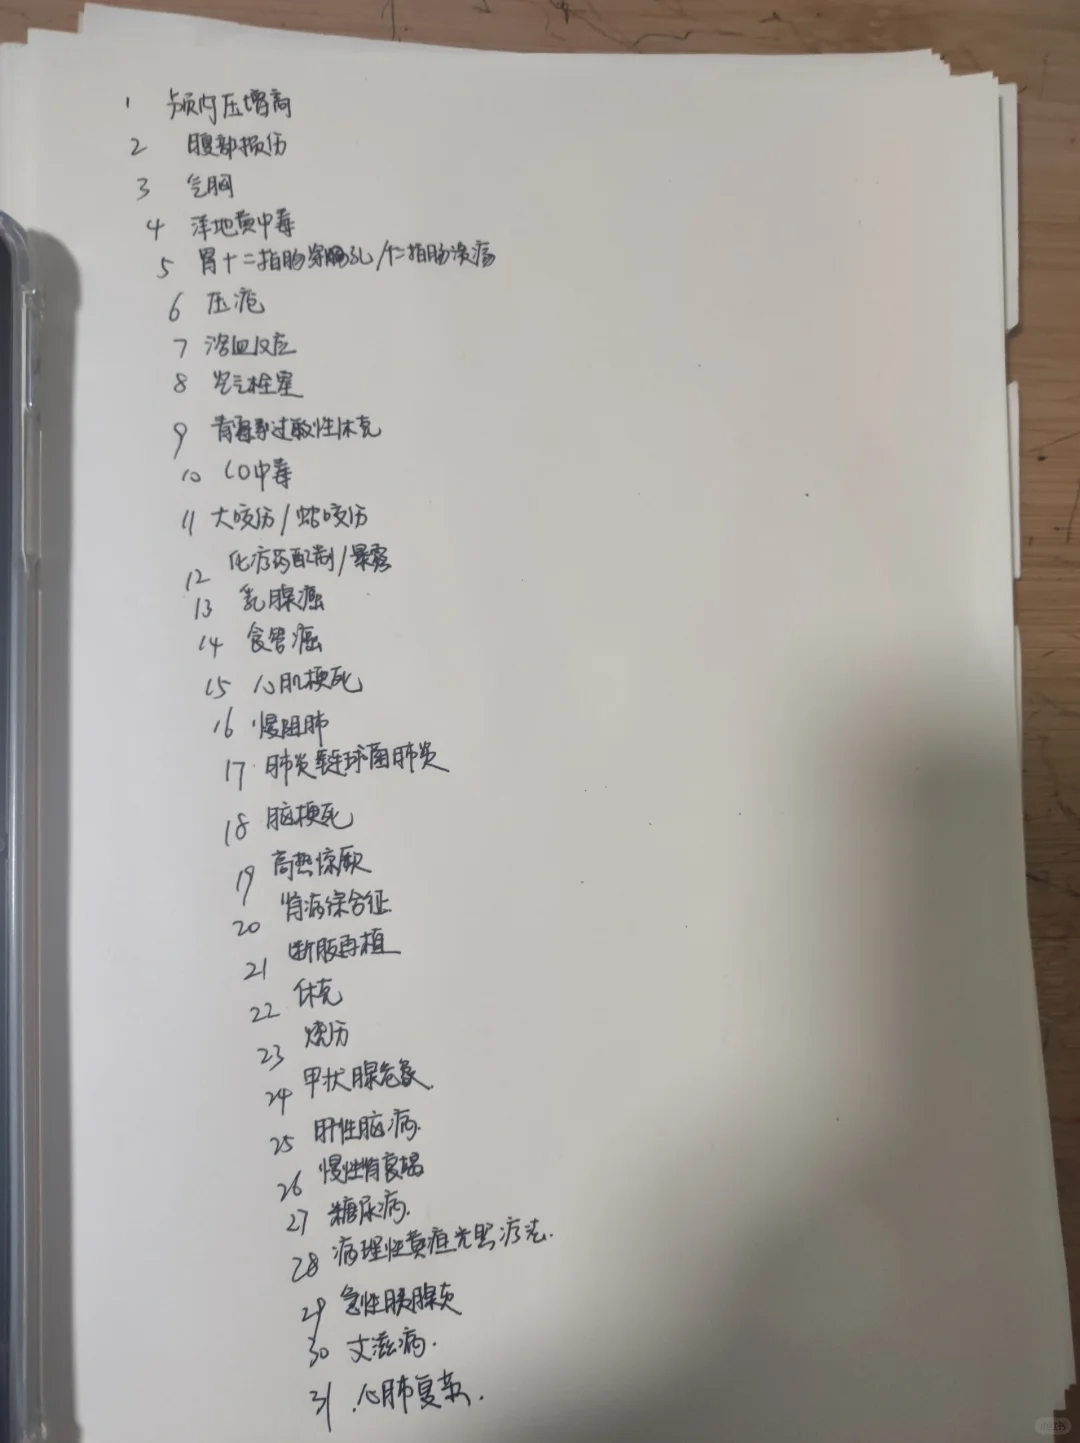 1 颅内压增高
2 腹部损伤
3 气胸
4 洋地黄中毒
5 胃十二指肠穿孔/十二指肠溃疡
6 压疮
7 溶血反应
8 空气栓塞
9 青霉素过敏性休克
10 CO中毒
11 犬咬伤/蛇咬伤
12 化疗药配制/暴露
13 乳腺癌
14 食管癌
15 心肌梗死
16 慢阻肺
17 肺炎链球菌肺炎
18 脑梗死
19 高热惊厥
20 肾病综合征
21 断肢再植
22 休克
23 烧伤
24 甲状腺危象
25 肝性脑病
26 慢性肾衰竭
27 糖尿病.
28 病理性黄疸光照疗法.
29 急性胰腺炎
30 艾滋病.
31 心肺复苏.